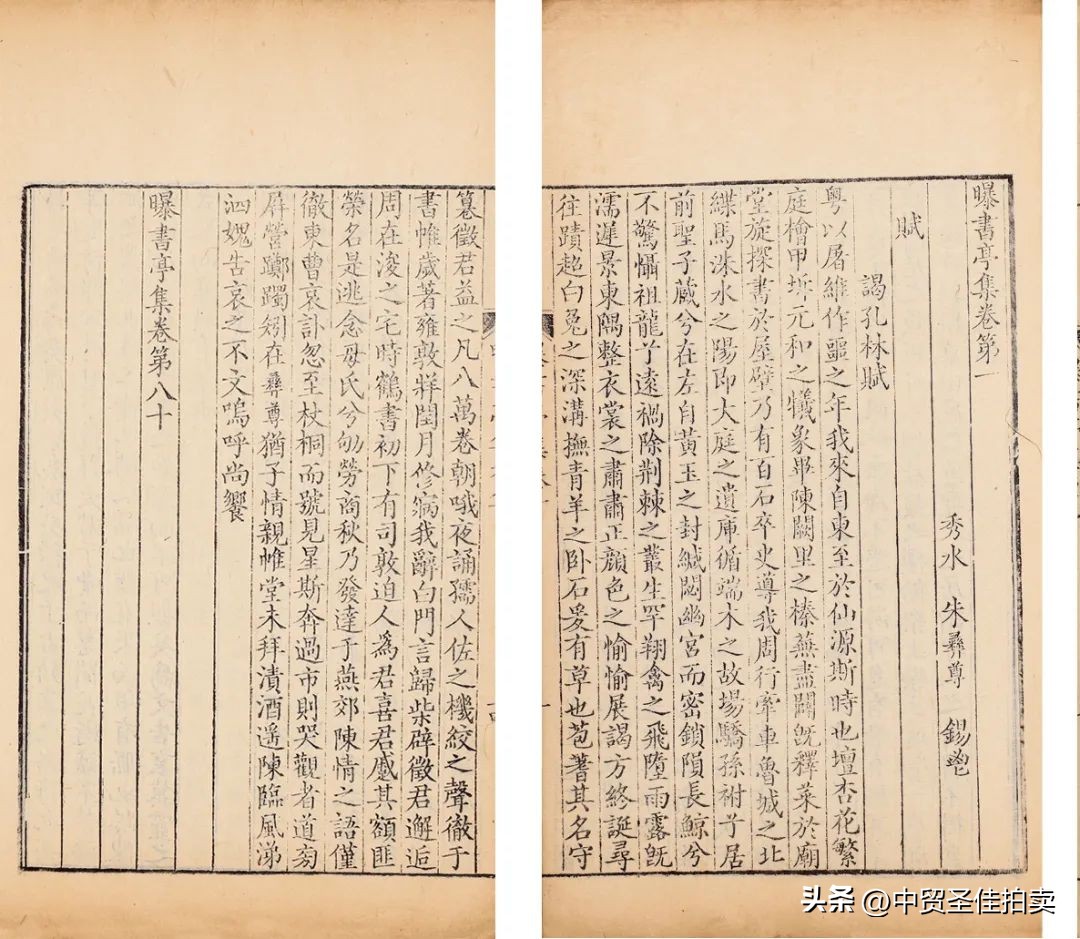 曝書亭集卷第一
秀水 朱彝尊 錫鬯
賦
謁孔林賦
粤以屠維作噩之年我來自東至於仙源斯時也壇杏花繁
庭檜甲坼元和之犠象畢陳闕里之榛蕪盡闢旣釋菜於廟
堂旋探書於屋壁乃有百石卒史導我周行牽車魯城之北
緤馬洙水之陽即大庭之遺庫循端木之故場驕孫祔于居
前聖子藏兮在左自黄玉之封緘閟幽宮而密鎖隕長鯨兮
不驚懾祖龍于遠禍除荆棘之叢生罕翔禽之飛墮雨露旣
濡遲景東隅整衣裳之肅肅正顔色之愉愉展謁方終誕尋
往蹟超白兔之深溝撫青羊之卧石爰有草也苞蓍其名守
篡徵君益之凡八萬卷朝哦夜誦孺人佐之機絞之聲徹于
書帷歲著雍敦牂閏月修病我辭白門言歸柴辟徵君邂逅
周在浚之宅時鶴書初下有司敦迫人爲君喜君慼其額匪
榮名是逃念母氏兮劬勞商秋乃發達于燕郊陳情之語僅
徹東曹哀訃忽至杖桐而號見星斯奔過市則哭觀者道旁
屏營躑躅矧在彝尊猶子情親帷堂未拜漬酒遥陳臨風涕
泗媿告哀之不文嗚呼尚饗
曝書亭集卷第八十
头条 @中贸圣佳拍卖